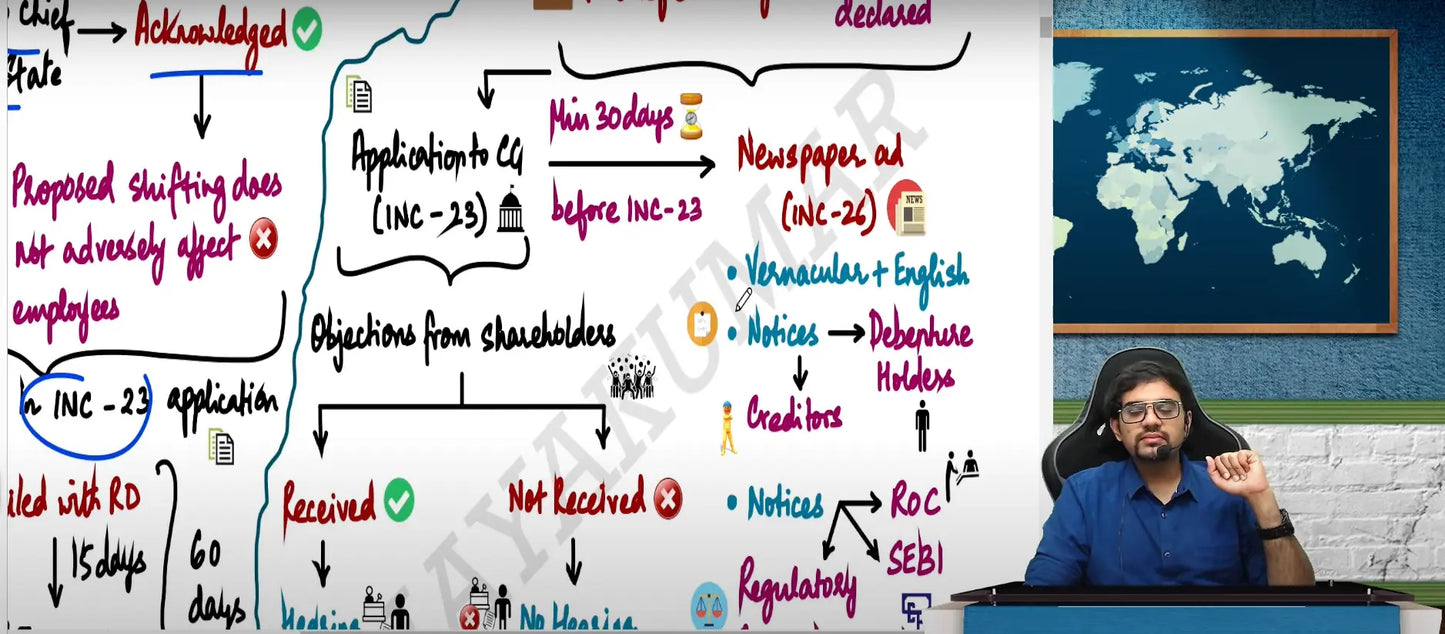 Chief → Acknowledged
State
Proposed shifting does
not adversely affect
employees
INC - 23 application
with RD
15 days
60
days
declared
Application to CG
(INC - 23)
Min 30 days
before INC - 23
Newspaper ad
(INC - 26)
NEWS
• Vernacular + English
• Notices → Debenture
Holders
Creditors
• Notices → RoC
SEBI
Regulatory
Objections from shareholders
Received
Not Received
Hearing
No Hearing
JAYAKUMAR